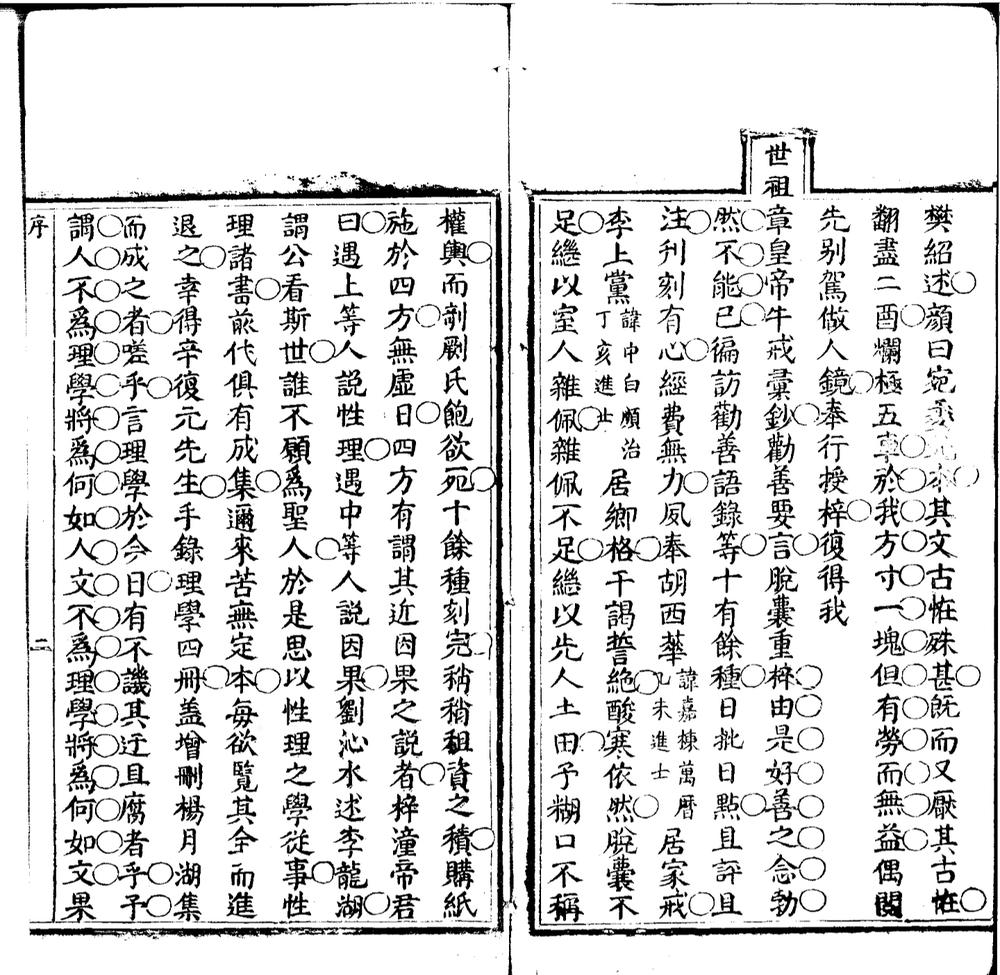 樊紹述顔曰宛其文古恠殊甚旣而又厭其古恠
翻盡二酉爛極五車於我方寸一塊但有勞而無益偶閱
先别駕做人鏡奉行授梓復得我
世祖章皇帝牛戒彚鈔勸善要言脫囊重梓由是好善之念勃
然不能已徧訪勸善語錄等十有餘種日批日點且評且
注刋刻有心經費無力夙奉胡西華諱嘉棟萬曆己未進士居家戒
李上黨諱中白順治丁亥進士居鄉格干謁誓絶酸寒依然脫囊不
足繼以室人雜佩雜佩不足繼以先人土田予糊口不稱
權輿而剞劂氏飽欲死十餘種刻完稍稍租資之積購紙
施於四方無虛日四方有謂其近因果之説者梓潼帝君
曰遇上等人説性理遇中等人説因果劉沁水述李龍湖
謂公看斯世誰不願爲聖人於是思以性理之學從事性
理諸書前代俱有成集邇來苦無定本每欲覽其全而進
退之幸得辛復元先生手錄理學四冊盖增刪楊月湖集
而成之者嗟乎言理學於今日有不譏其迂且腐者乎予
謂人不爲理學將爲何如人文不爲理學將爲何如文果
序
二